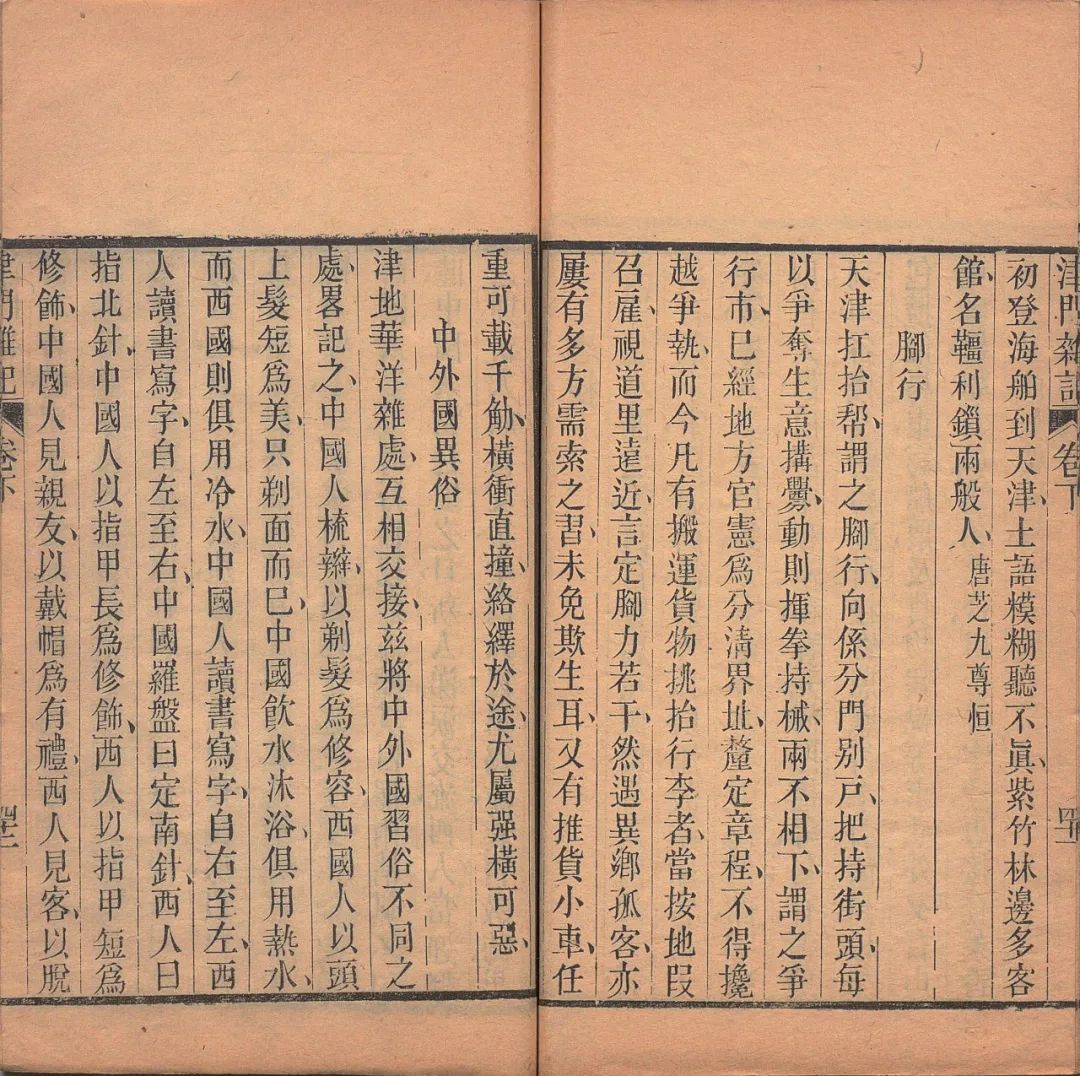 津門雜記 卷下 四十一
初登海船到天津、土語糢糊聽不眞、紫竹林邊多客
館、名韁利鎖兩般人、唐芝九尊恒
腳行
天津扛抬帮、謂之腳行、向係分門别戸、把持街頭、每
以爭奪生意搆釁、動則揮拳持械、兩不相下、謂之爭
行市、已經地方官憲爲分淸界址、釐定章程、不得攙
越爭執、而今凡有搬運貨物挑抬行李者、當按地段
召雇、視道里遠近、言定腳力若干、然遇異鄉孤客、亦
屢有多方需索之習、未免欺生耳、又有推貨小車、任
重可載千觔、橫衝直撞、絡繹於途、尤屬强橫可惡、
中外國異俗
津地華洋雜處、互相交接、茲將中外國習俗不同之
處、畧記之、中國人梳辮、以剃髮爲修容、西國人以頭
上髮短爲美、只剃面而已、中國飮水沐浴、俱用熱水、
而西國則俱用冷水、中國人讀書寫字、自右至左、西
人讀書寫字、自左至右、中國羅盤曰定南針、西人曰
指北針、中國人以指甲長爲修飾、西人以指甲短爲
修飾、中國人見親友、以戴帽爲有禮、西人見客、以脫
津門雜記 卷下 四十二